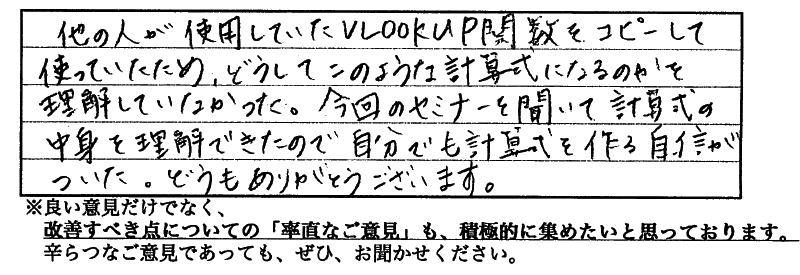 他の人が使用していたVLOOKUP関数をコピーして
使っていたため、どうしてこのような計算式になるのかを
理解していなかった。今回のセミナーを聞いて計算式の
中身を理解できたので自分でも計算式を作る自信が
ついた。どうもありがとうございます。
※良い意見だけでなく、
改善すべき点についての「率直なご意見」も、積極的に集めたいと思っております。
辛らつなご意見であっても、ぜひ、お聞かせください。